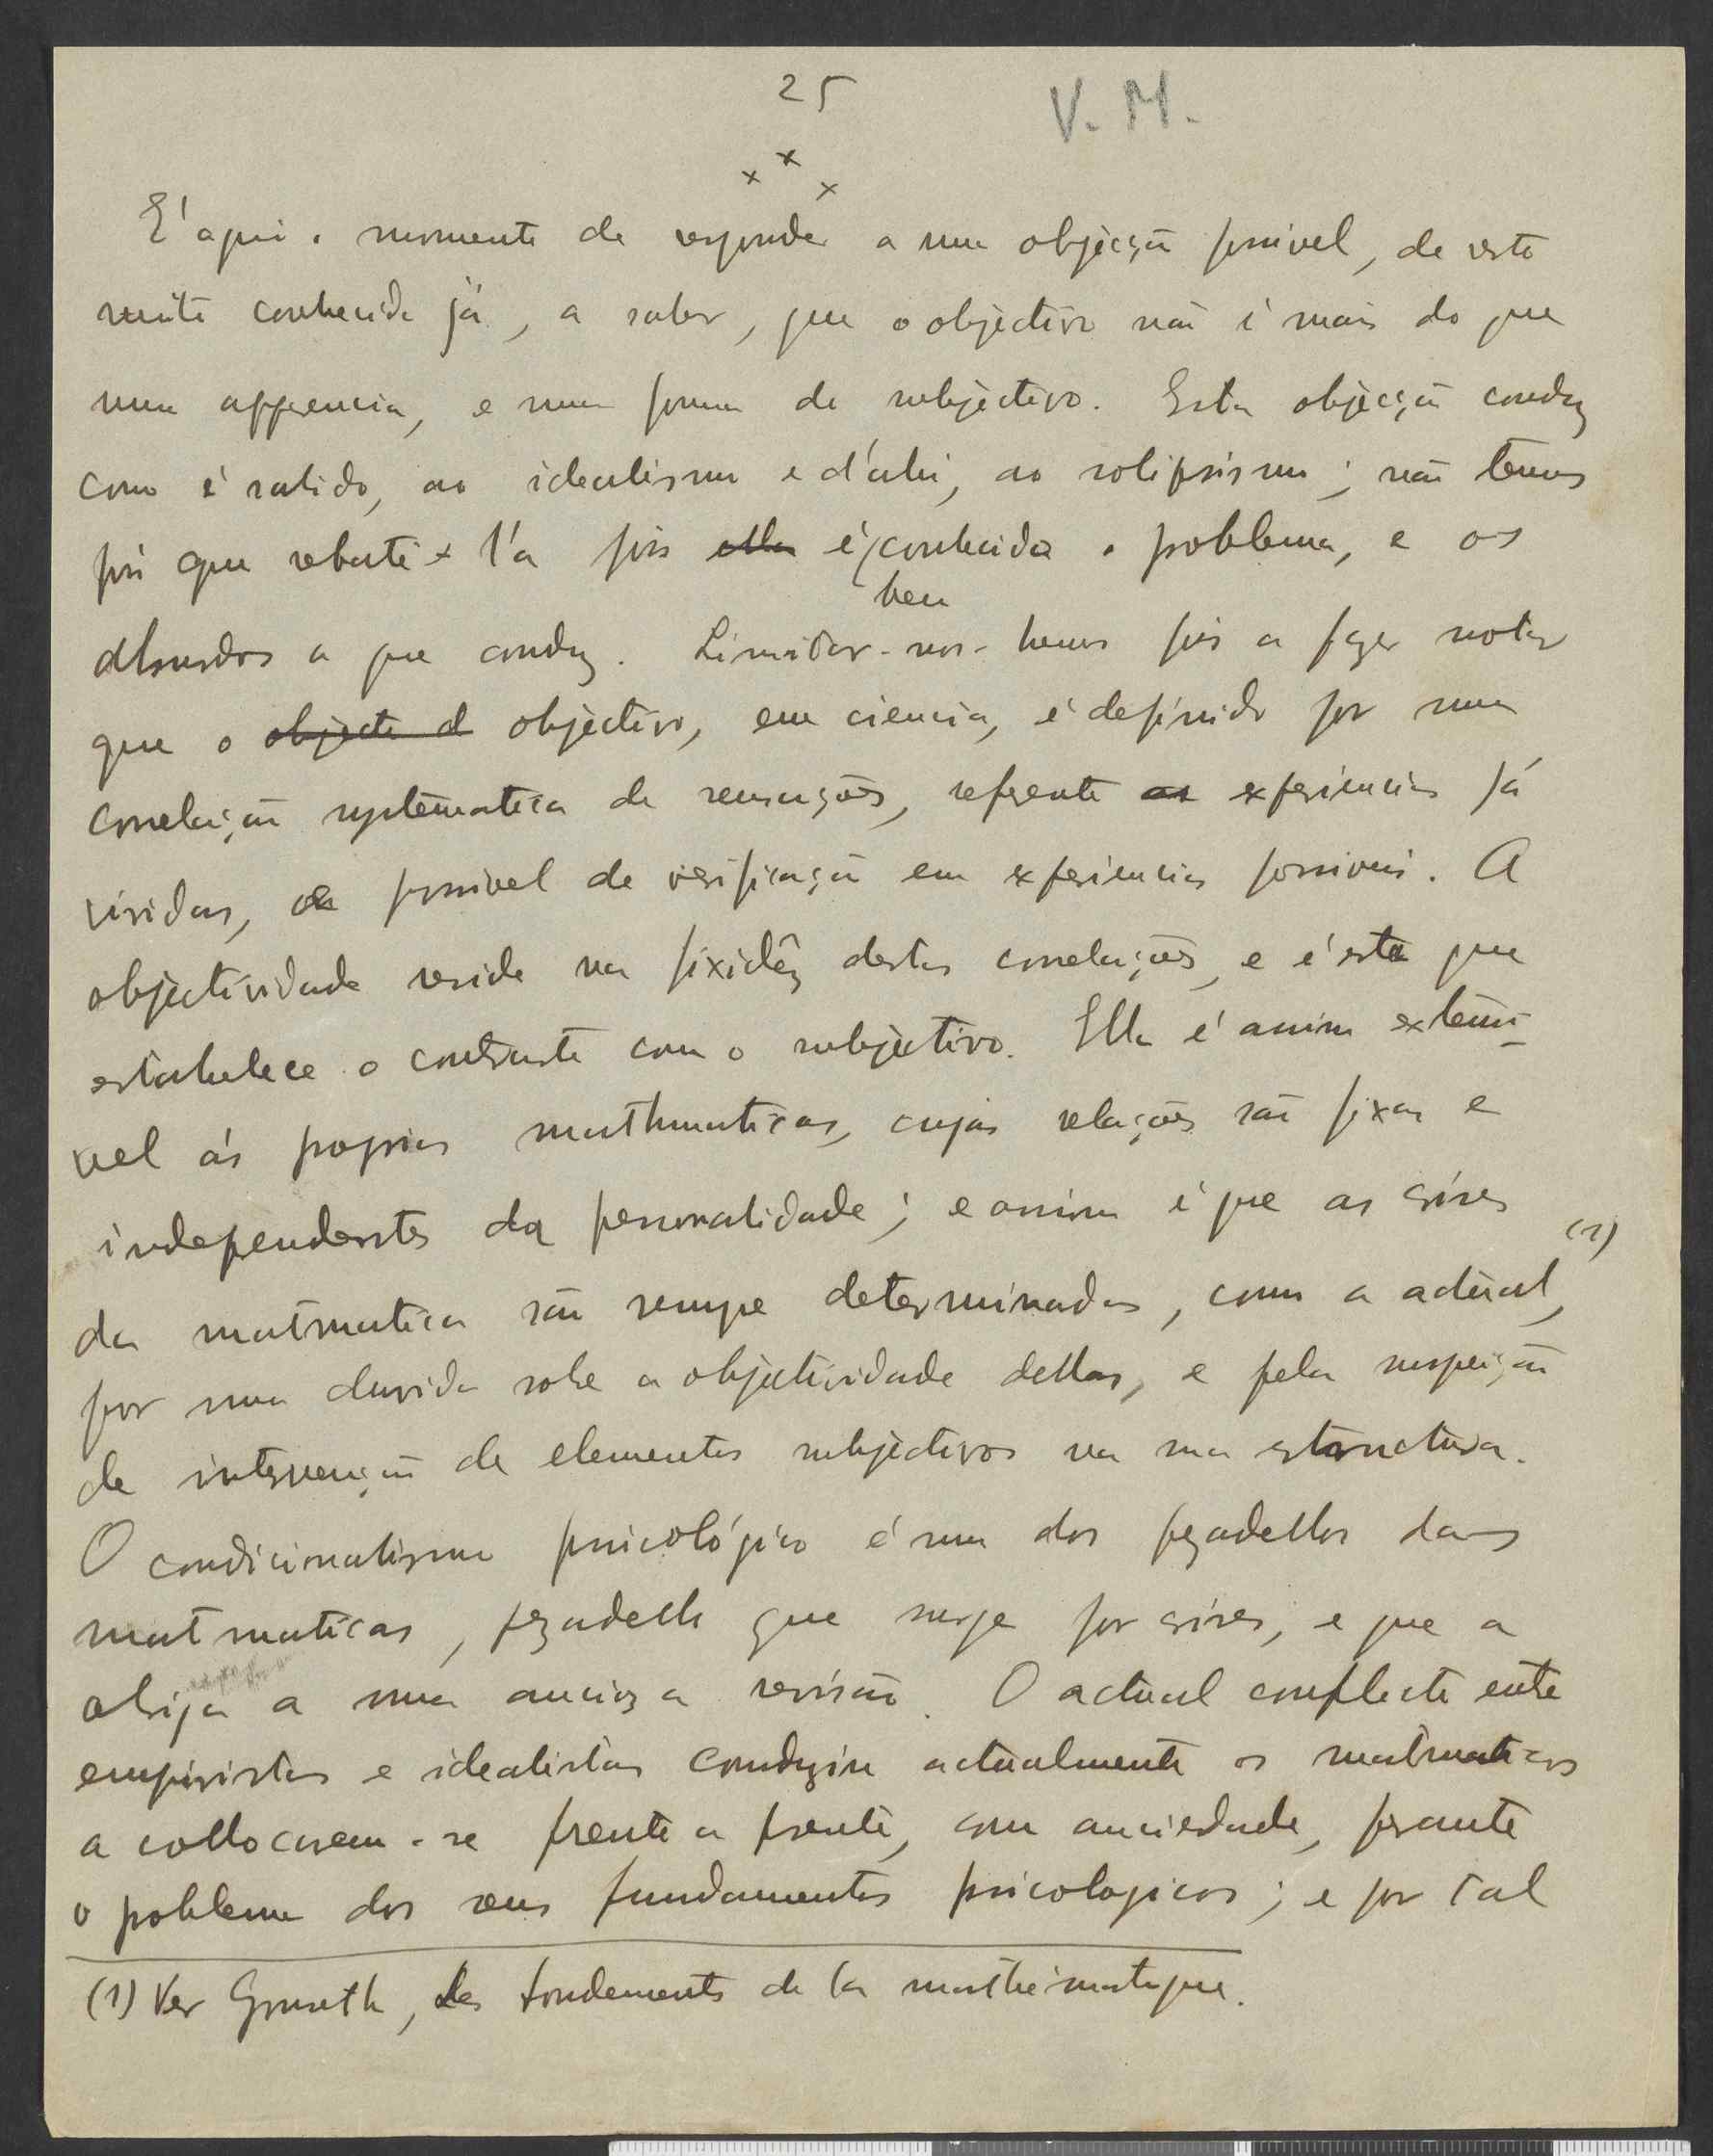 25
V. M.
x x x
E' aqui o momento de responder a uma objecção possivel, de resto
muito conhecida já, a saber, que o objectivo não é mais do que
uma apparencia, e uma forma de subjectivo. Esta objecção conduz
como é sabido, ao idealismo e d'ahi, ao solipsismo; não temos
pois que rebate-l'a pois ella é conhecido o problema, e os
bem
absurdos a que conduz. Limitar-nos-hemos pois a fazer notar
que o objecto d objectivo, em ciencia, é definido por uma
correlação systematica de sensações, referente as experiencias já
vividas, ou possivel de verificação em experiencias possiveis. A
objectividade reside na fixidêz destas correlações, e é esta que
estabelece o contraste com o subjectivo. Ella é assim extensi-
vel ás proprias mathematicas, cujas relações são fixas e
independentes da personalidade; e assim é que as crises
da matmatica são sempre determinadas, como a actual, (1)
por uma duvida sobre a objectividade dellas, e pela suspeição
de intervenção de elementos subjectivos na sua estructura.
O condicionalismo psicológico é um dos pezadellos das
matmaticas, pezadello que surge por crises, e que a
obriga a uma anciosa revisão. O actual conflicto entre
empiristas e idealistas conduziu actualmente os matmaticos
a collocarem-se frente a frente, com anciedade, perante
o problema dos seus fundamentos psicologicos; e por tal
(1) Ver Gonseth, Les fondements de la mathématique.